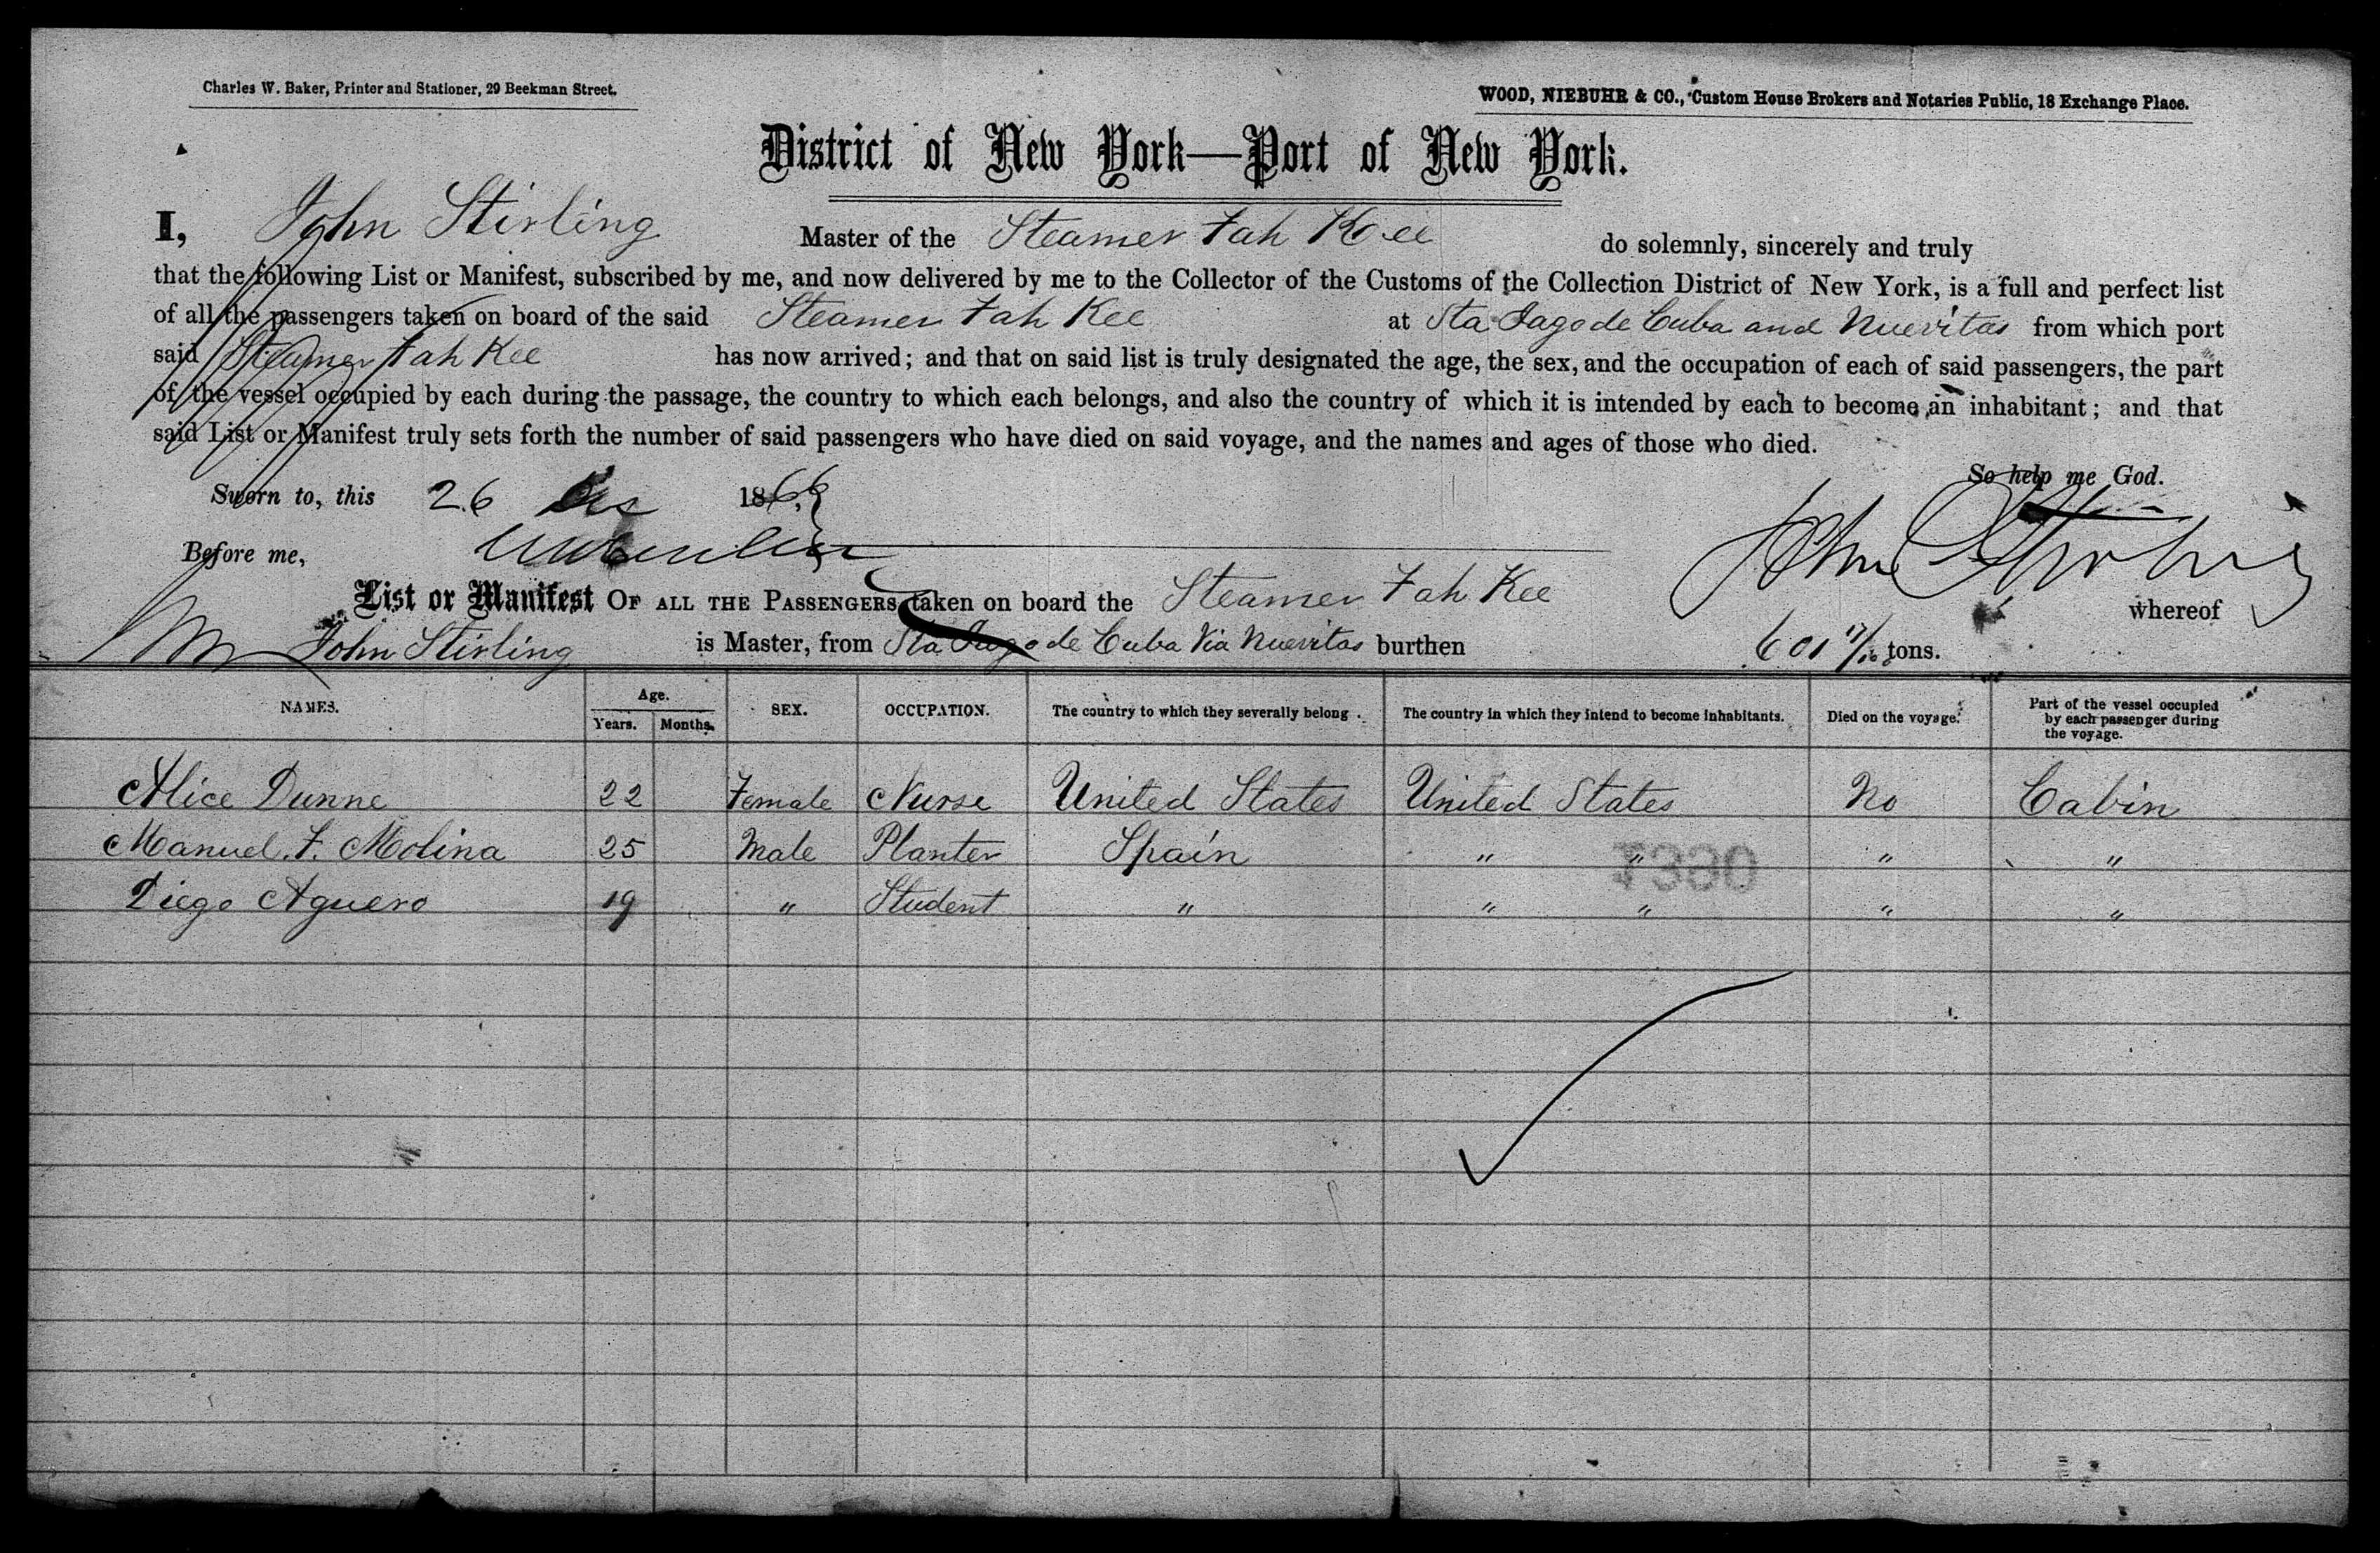 Charles W. Baker, Printer and Stationer, 29 Beekman Street.
WOOD, NIEBUHR & CO., Custom House Brokers and Notaries Public, 18 Exchange Place.
District of New York—Port of New York.
I, John Stirling Master of the Steamer Fah Kee do solemnly, sincerely and truly
that the following List or Manifest, subscribed by me, and now delivered by me to the Collector of the Customs of the Collection District of New York, is a full and perfect list
of all the passengers taken on board of the said Steamer Fah Kee at Sta Jago de Cuba and Nuevitas from which port
said Steamer Fah Kee has now arrived; and that on said list is truly designated the age, the sex, and the occupation of each of said passengers, the part
of the vessel occupied by each during the passage, the country to which each belongs, and also the country of which it is intended by each to become an inhabitant; and that
said List or Manifest truly sets forth the number of said passengers who have died on said voyage, and the names and ages of those who died.
So help me God.
Sworn to, this 26 1866
Before me,
John Stirling
List or Manifest OF ALL THE PASSENGERS taken on board the Steamer Fah Kee whereof
John Stirling is Master, from Sta Jago de Cuba Via Nuevitas burthen 601 tons.
NAMES. Age. Years. Months. SEX. OCCUPATION. The country to which they severally belong. The country in which they intend to become inhabitants. Died on the voyage. Part of the vessel occupied by each passenger during the voyage.
Alice Dunne 22 Female Nurse United States United States No Cabin
Manuel. F. Molina 25 Male Planter Spain " " " "
Diego Aguero 19 " Student " " " " "